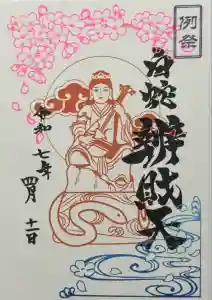 例祭
白蛇辨財天
令和七年
四月
十一日